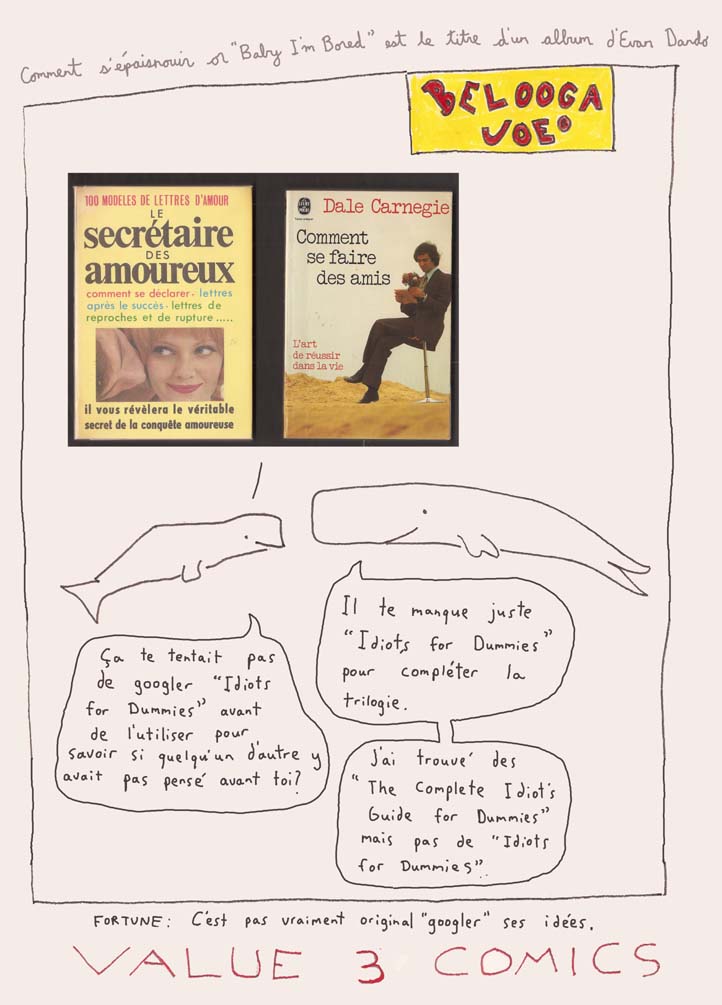 Comment s'épaisnouir or "Baby I'm Bored" est le titre d'un album d'Evan Dando
BELOOGA
JOE
100 MODELES DE LETTRES D'AMOUR
LE
secrétaire
DES
amoureux
comment se déclarer · lettres
après le succès · lettres de
reproches et de rupture .....
il vous révèlera le véritable
secret de la conquête amoureuse
Dale Carnegie
Comment
se faire
des amis
L'art
de réussir
dans la vie
Il te manque juste
"Idiots for Dummies"
pour compléter la
trilogie.
Ça te tentait pas
de googler "Idiots
for Dummies" avant
de l'utiliser pour
savoir si quelqu'un d'autre y
avait pas pensé avant toi?
J'ai trouvé des
"The Complete Idiot's
Guide for Dummies"
mais pas de "Idiots
for Dummies".
FORTUNE: C'est pas vraiment original "googler" ses idées.
VALUE 3 COMICS